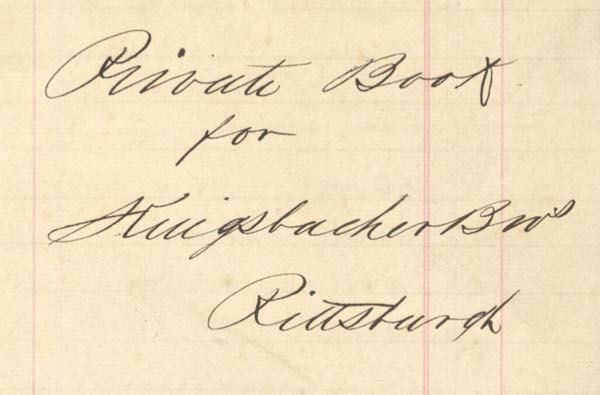 Private Book
for
Kingsbacher Bros
Pittsburgh